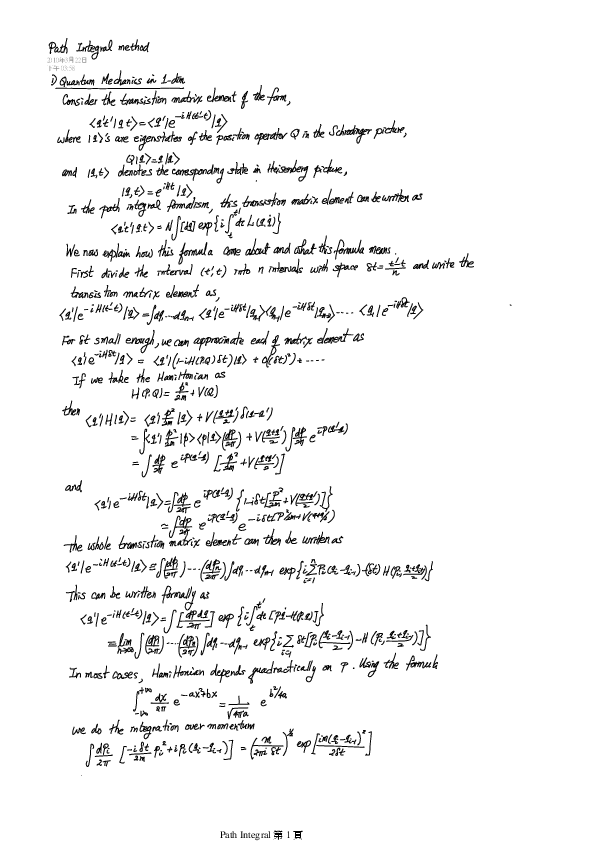 Path Integral method
2010年3月22日
下午 03:56
1) Quantum Mechanics in 1-dim
Consider the transistion matrix element of the form,
<q't'|q t> = <q'|e^{-iH(t'-t)}|q>
where |q>'s are eigenstates of the position operator Q in the Schrodinger picture,
Q|q> = q|q>
and |q,t> denotes the corresponding state in Heisenberg picture,
|q,t> = e^{iHt}|q>
In the path integral formalism, this transistion matrix element can be written as
<q't'|q t> = N∫[dq] exp{i∫_t^{t'} dt L(q,q̇)}
We now explain how this formula come about and what this formula means.
First divide the interval (t',t) into n intervals with space δt = (t'-t)/n and write the
transistion matrix element as,
<q'|e^{-iH(t'-t)}|q> = ∫dq_1 ... dq_{n-1} <q'|e^{-iHδt}|q_{n-1}> <q_{n-1}|e^{-iHδt}|q_{n-2}> .... <q_1|e^{-iHδt}|q>
For δt small enough, we can approximate each of matrix element as
<q'|e^{-iHδt}|q> = <q'|(1-iH(P,Q)δt)|q> + O((δt)^2) + ....
If we take the Hamiltonian as
H(P,Q) = p^2/2m + V(Q)
then
<q'|H|q> = <q'|p^2/2m|q> + V((q+q')/2) δ(q-q')
= ∫<q'|p^2/2m|p><p|q>(dp/2π) + V((q+q')/2) ∫dp/2π e^{ip(q'-q)}
= ∫dp/2π e^{ip(q'-q)} [p^2/2m + V((q+q')/2)]
and
<q'|e^{-iHδt}|q> = ∫dp/2π e^{ip(q'-q)} {1-iδt[p^2/2m + V((q+q')/2)]}
≃ ∫dp/2π e^{ip(q'-q)} e^{-iδt[p^2/2m + V((q+q')/2)]}
The whole transistion matrix element can then be written as
<q'|e^{-iH(t'-t)}|q> ≅ ∫(dp_1/2π) .... (dp_n/2π) ∫dq_1 .. dq_{n-1} exp{i Σ_{i=1}^n p_i(q_i-q_{i-1}) - (δt) H(p_i, (q_i+q_{i-1})/2)}
This can be written formally as
<q'|e^{-iH(t'-t)}|q> = ∫[dp dq/2π] exp{i∫_t^{t'} dt[pq̇-H(p,q)]}
≡ lim_{n→∞} ∫(dp_1/2π) .... (dp_n/2π) ∫dq_1 .. dq_{n-1} exp{i Σ_{i=1} δt[p_i((q_i-q_{i-1})/2) - H(p_i, (q_i+q_{i-1})/2)]}
In most cases, Hamiltonian depends quadractically on p. Using the formula
∫_{-∞}^{+∞} dx/2π e^{-ax^2+bx} = 1/√(4πa) e^{b^2/4a}
we do the integration over momentum
∫dp_i/2π [-iδt/2m p_i^2 + ip_i(q_i-q_{i-1})] = (m/2πiδt)^{1/2} exp[im(q_i-q_{i-1})^2/2δt]
Path Integral 第 1 頁